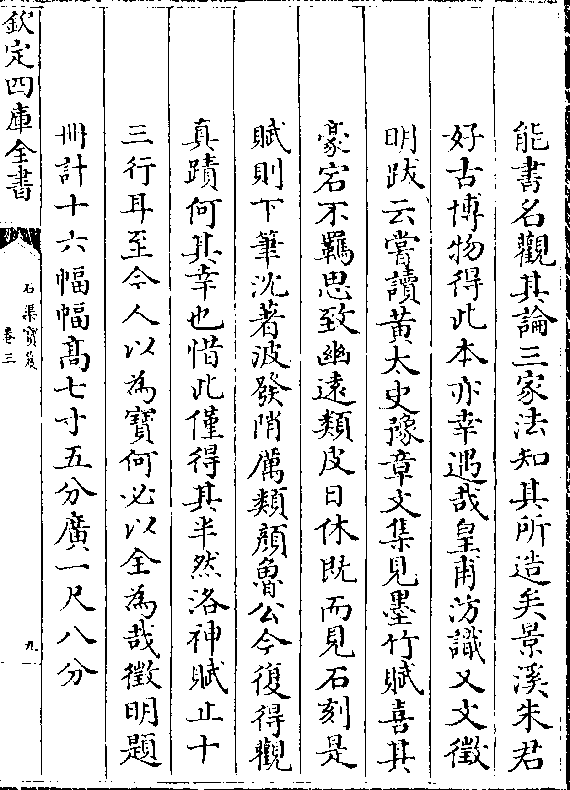 能書名觀其論三家法知其所造矣景溪朱君
好古博物得此本亦幸遇哉皇甫汸識又文徵
明跋云嘗讀黃太史豫章文集見墨竹賦喜其
豪宕不羈思致幽遠類皮日休既而見石刻是
賦則下筆沈著波發陗厲類顔魯公今復得觀
真蹟何其幸也惜此僅得其半然洛神賦止十
三行耳至今人以為寶何必以全為哉徵明題
冊計十六幅幅髙七寸五分廣一尺八分
欽定四庫全書
石渠寶笈
卷三
九